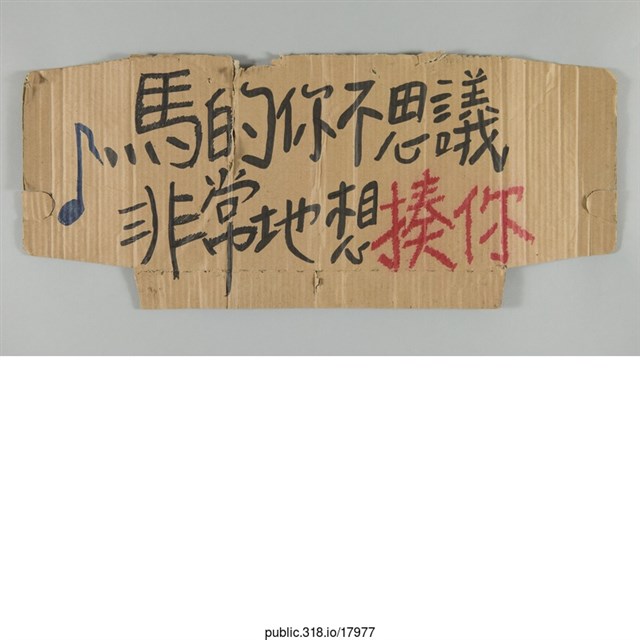 ♪...馬的你不思議
非常地想揍你
public.318.io/17977